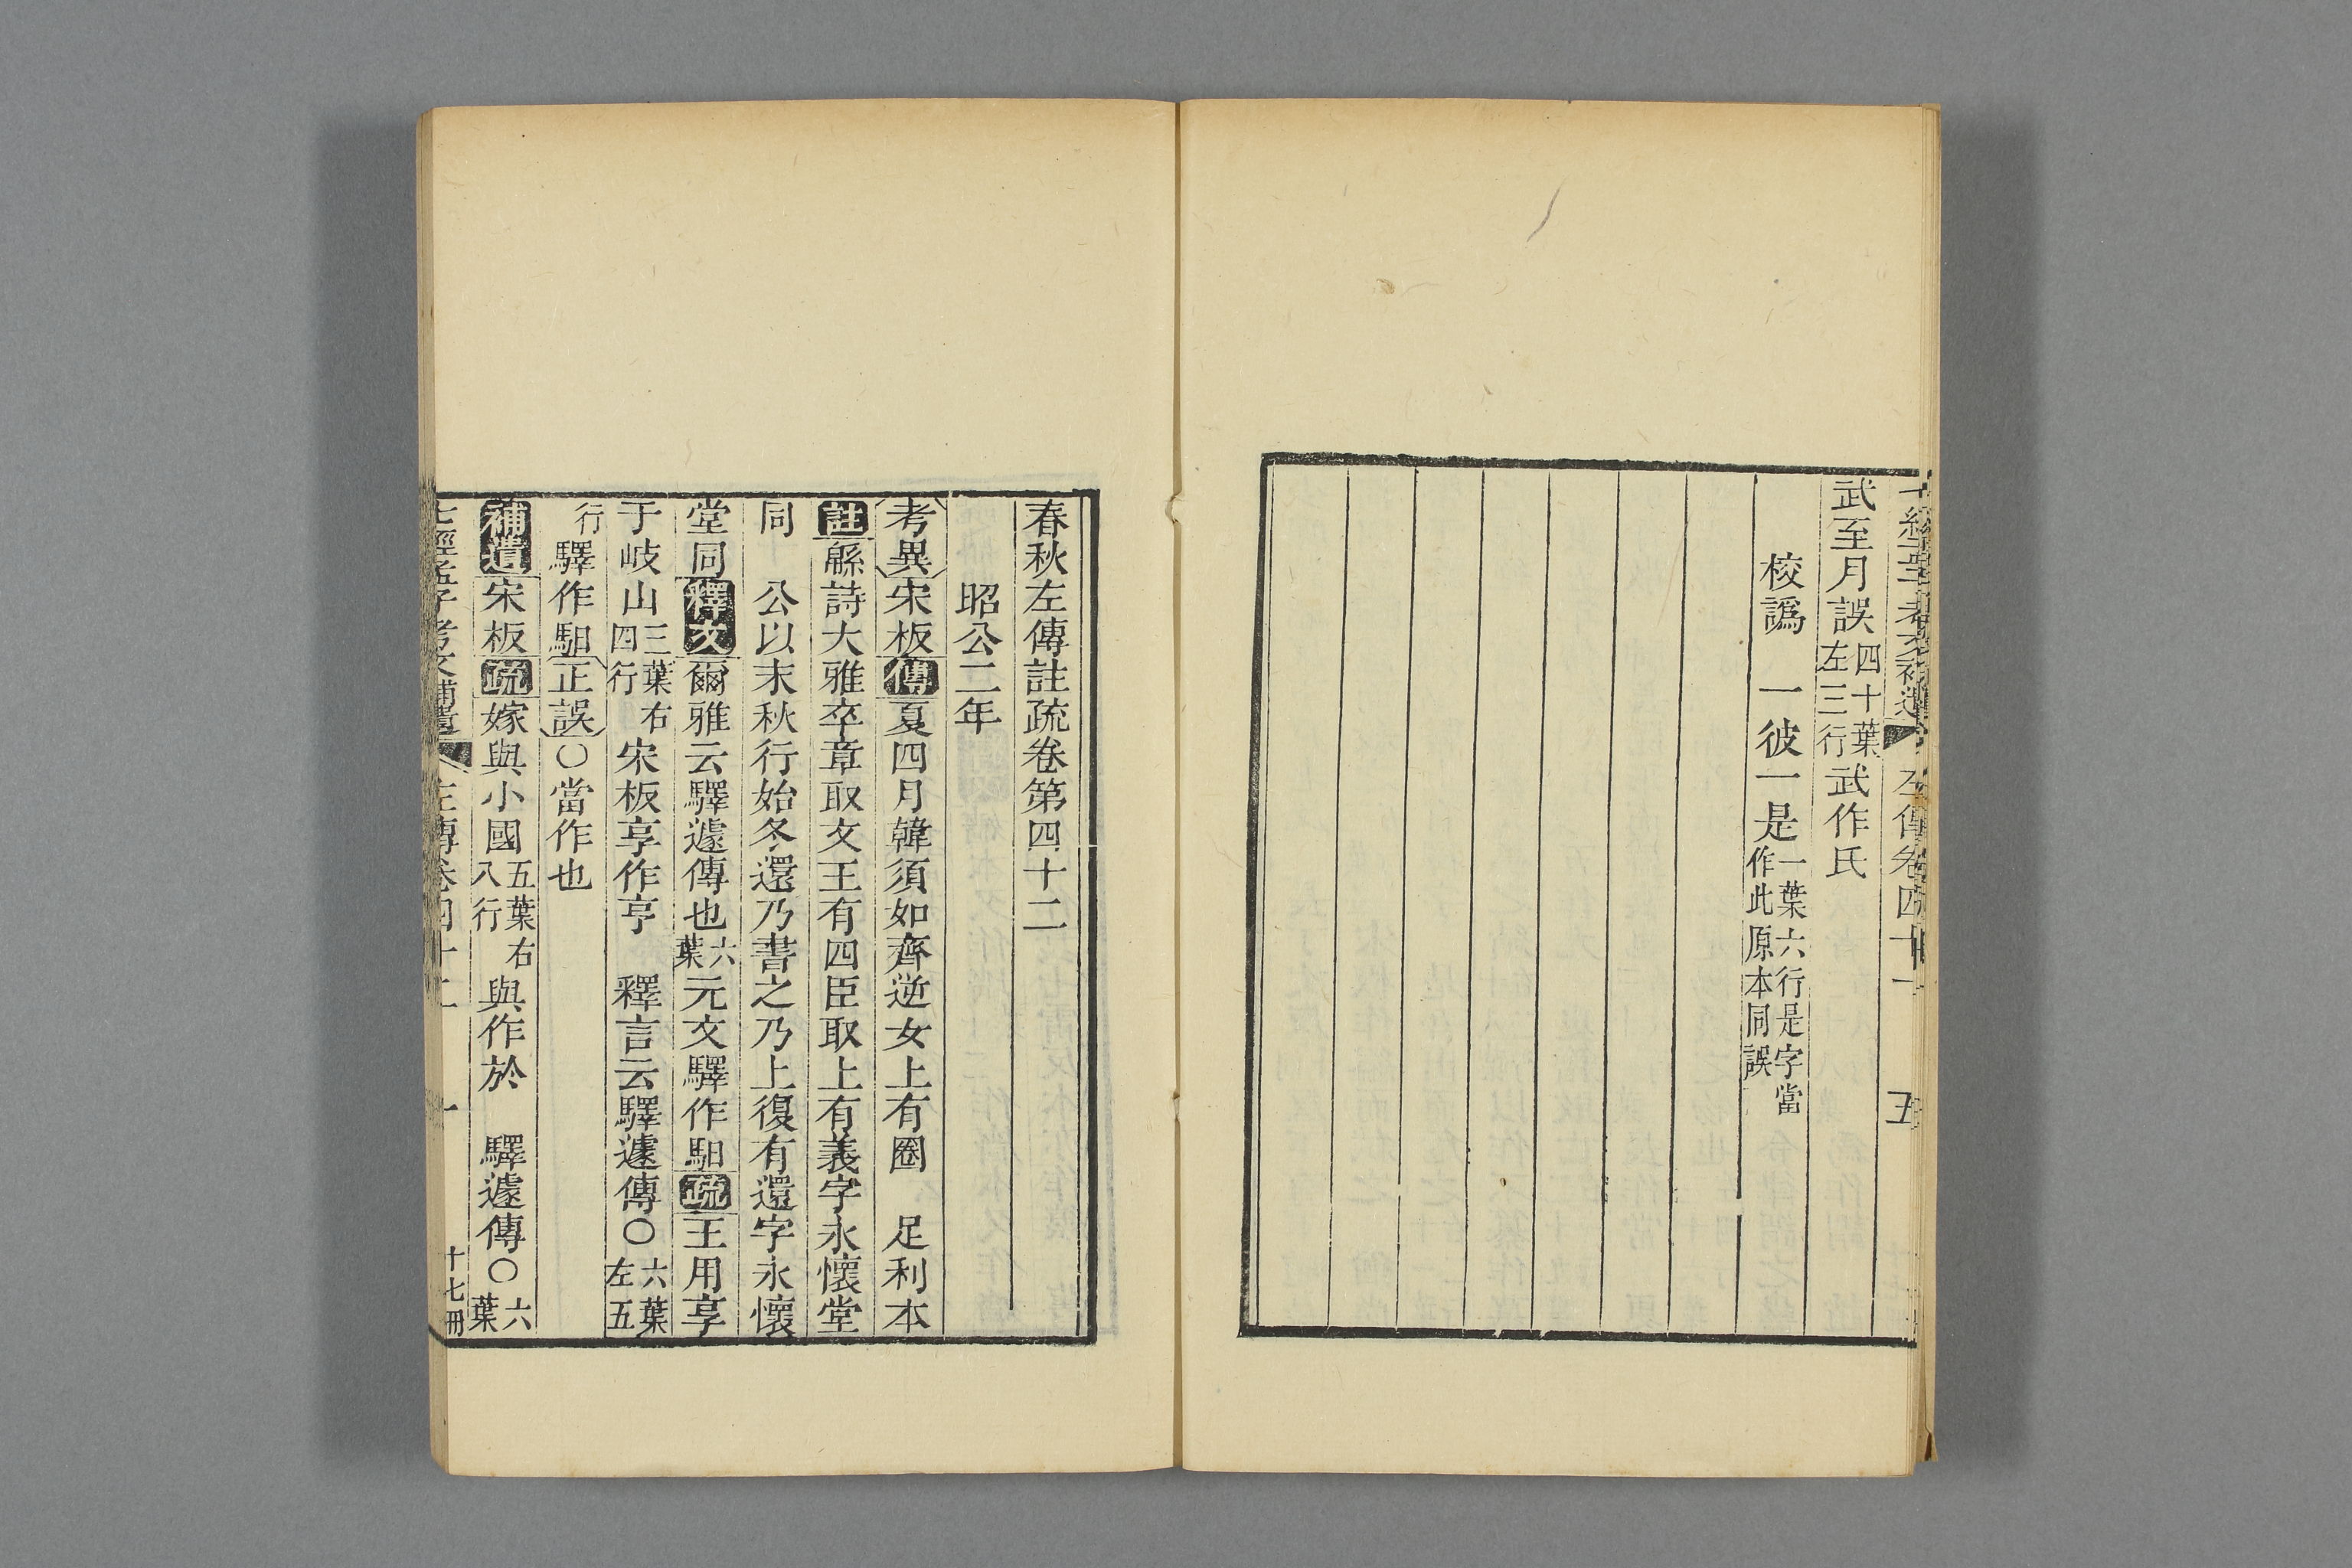 七經孟子考文補遺 左傳卷四十一 五
武至月誤四十葉左三行武作氏
校譌 一彼一是一葉六行是字當作此原本同誤
春秋左傳註疏卷第四十二
昭公二年
考異宋板傳夏四月韓須如齊逆女上有圈 足利本
註緜詩大雅卒章取文王有四臣取上有義字永懷堂
同 公以末秋行始冬還乃書之乃上復有還字永懷
堂同釋文爾雅云驛遽傳也六葉元文驛作馹疏王用享
于岐山三葉右四行宋板享作亨 釋言云驛遽傳〇六葉左五
行驛作馹正誤〇當作也
補遺宋板疏嫁與小國五葉右八行與作於 驛遽傳〇六葉
七經孟子考文補遺 左傳卷四十二 一 十七冊